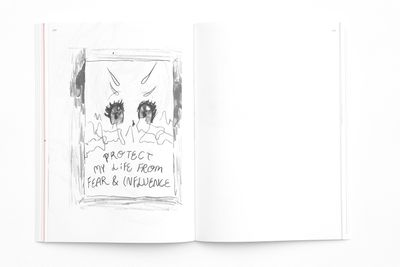 PROTECT
MY LiFE FROM
FEAR & INFLUENCE